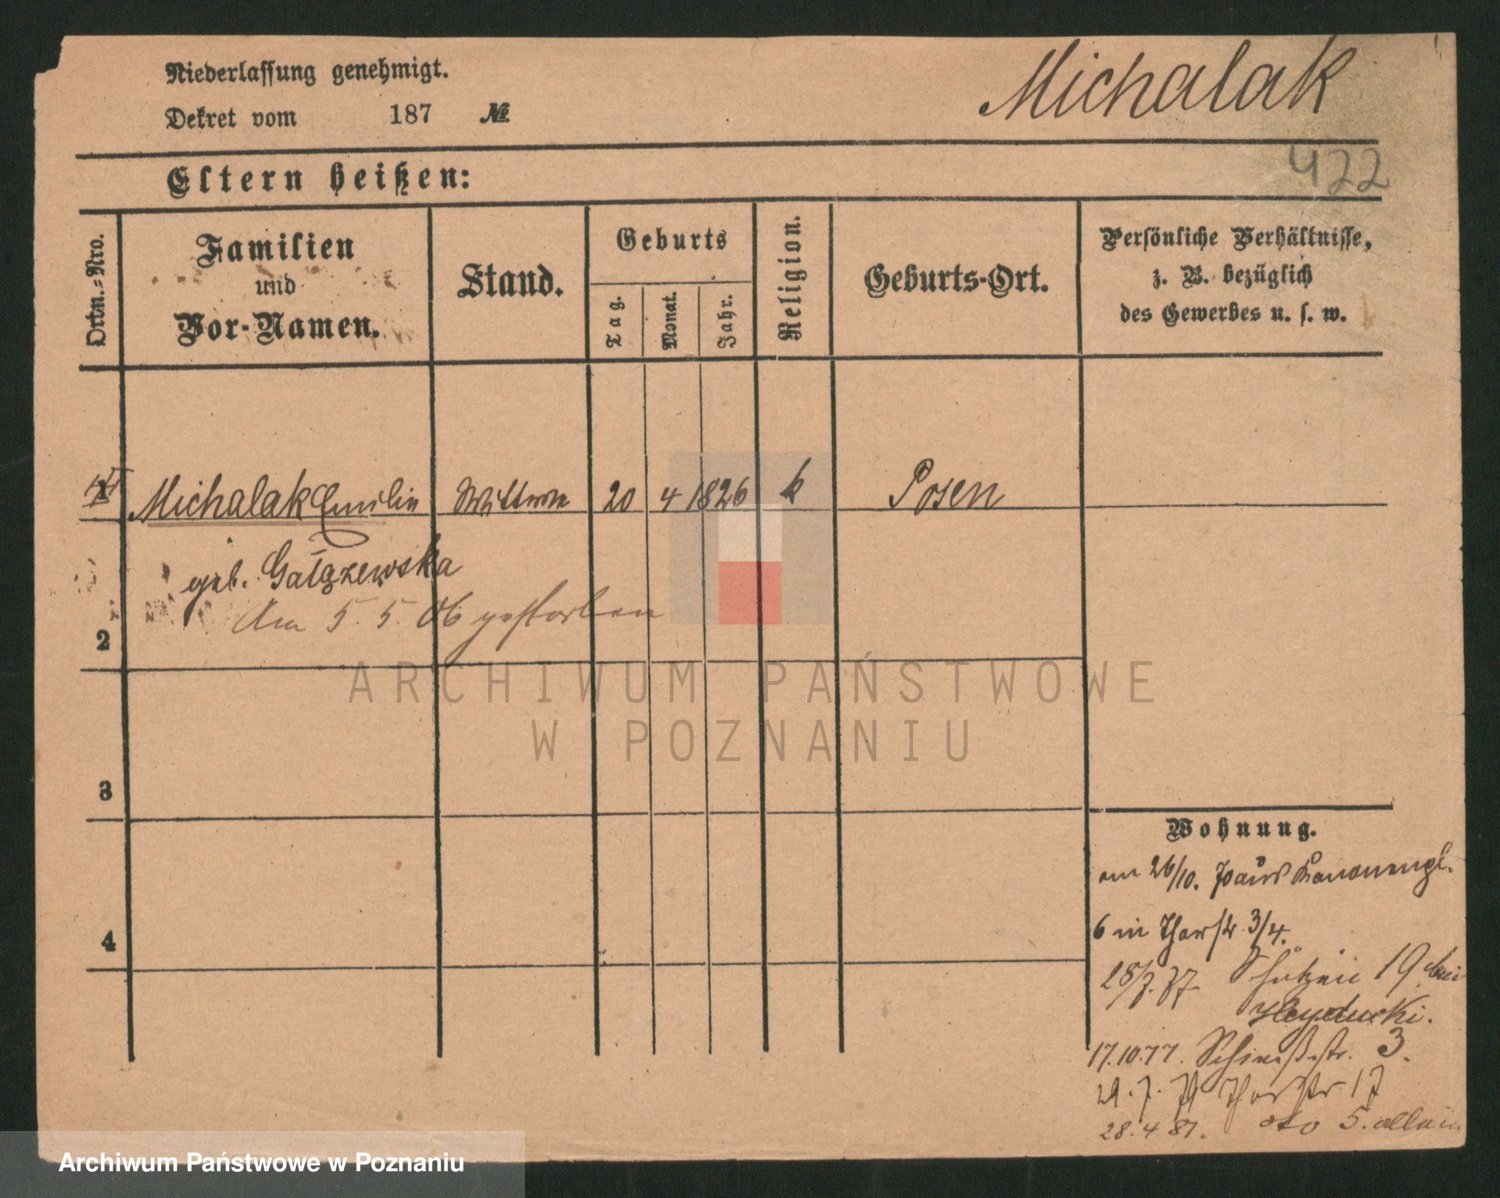 Niederlassung genehmigt.
Dekret vom 187 №
Michalak
422
Eltern heißen:
Ordn.-Nro.
Familien
und
Vor-Namen.
Stand.
Geburts
Tag.
Monat.
Jahr.
Religion.
Geburts-Ort.
Persönliche Verhältnisse,
z. B. bezüglich
des Gewerbes u. s. w.
1 Michalak Emilie Wittwe 20 4 1826 k Posen
geb. Gałązewska
Am 5. 5. 06 gestorben
2
3
4
Wohnung.
am 26/10.
6 in Thorstr 3/4.
28/7. 77. Schützen 19 bei
Heyducki.
17.10.77. str. 3.
29. 7. 79 Thorstr 17
28.4 81. dto 5. allein
ARCHIWUM PAŃSTWOWE
W POZNANIU
Archiwum Państwowe w Poznaniu